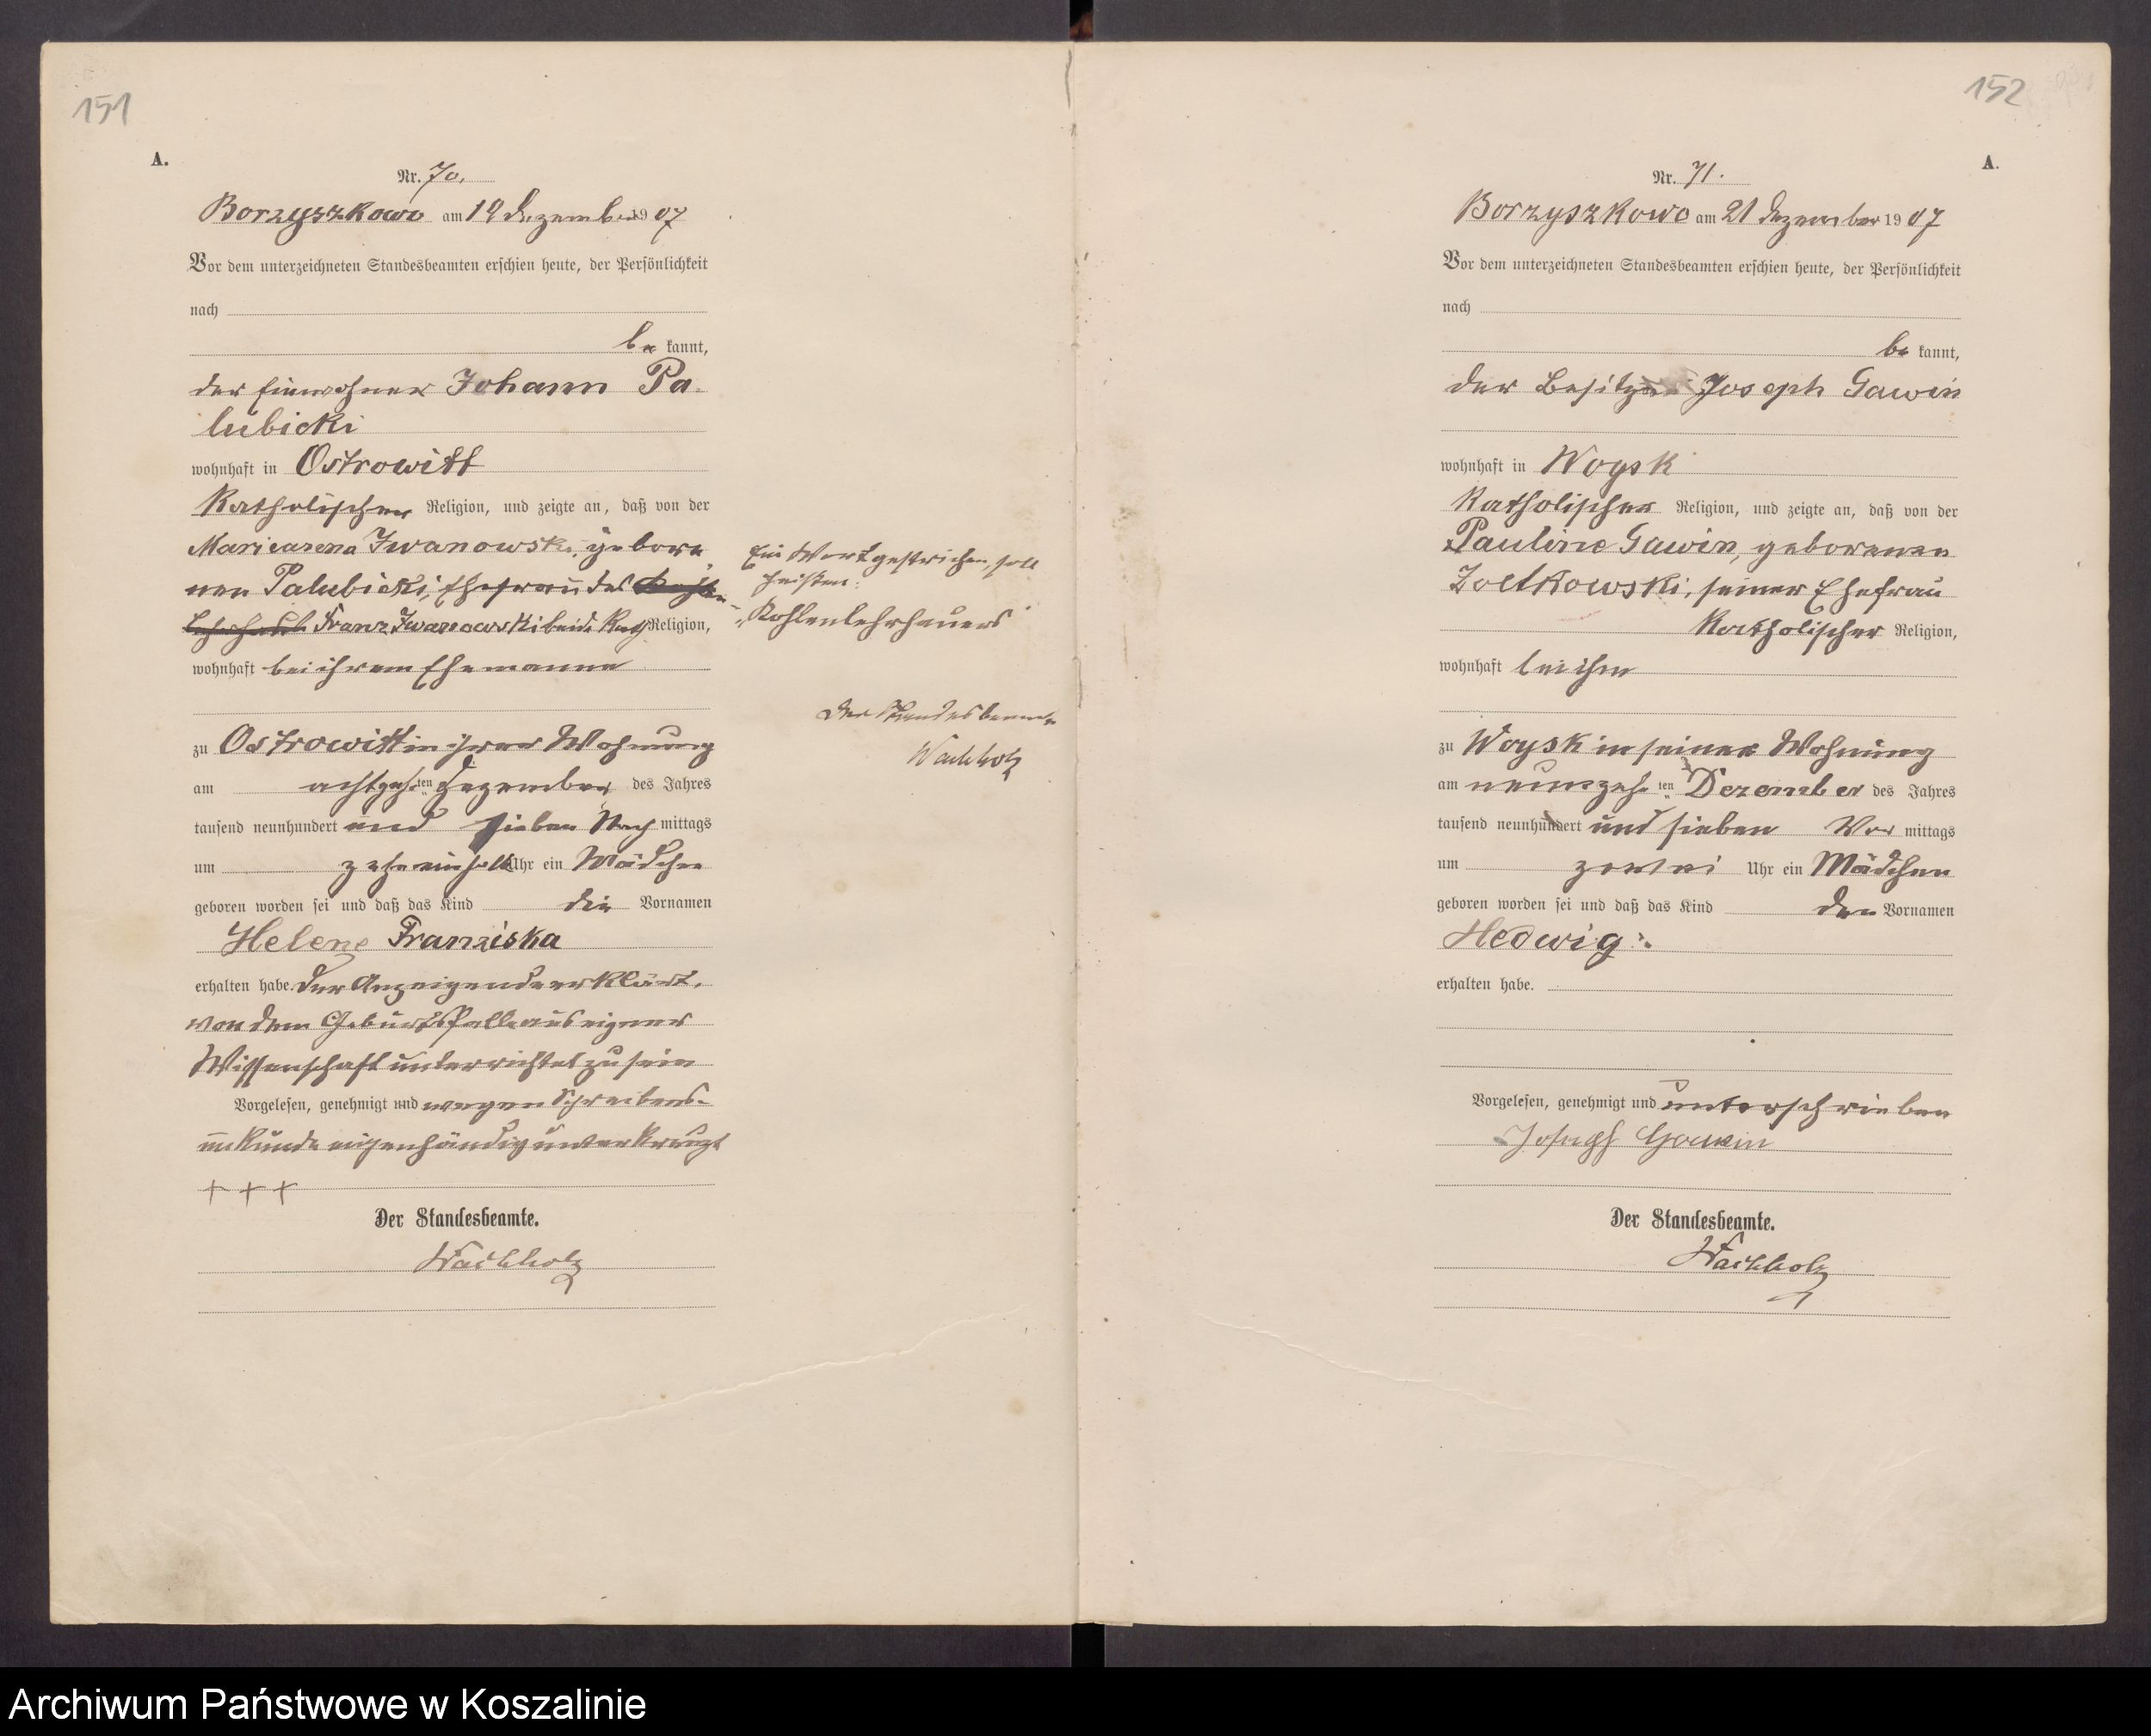 151
A.
Nr. 70.
Borzyszkowo am 19 Dezember 1907
Vor dem unterzeichneten Standesbeamten erschien heute, der Persönlichkeit
nach
be kannt,
der Einwohner Johann Pa-
lubicki
wohnhaft in Ostrowitt
katholischer Religion, und zeigte an, daß von der
Iwanowski, gebore-
nen Palubicki, Ehefrau des
Franz Iwanowski beide kath Religion,
wohnhaft bei ihrem Ehemanne
zu Ostrowitt in ihrer Wohnung
am achtzehnten Dezember des Jahres
tausend neunhundert und sieben Nach mittags
um zehneinhalb Uhr ein Mädchen
geboren worden sei und daß das Kind die Vornamen
Helene Franziska
erhalten habe. Der Anzeigende erklärt,
von dem Geburtsfalle aus eigener
Wissenschaft unterrichtet zu sein
Vorgelesen, genehmigt und wegen Schreibens-
unkunde eigenhändig unterkreuzt
+ + +
Der Standesbeamte.
Wachholz
Ein Wort gestrichen, soll
heißen:
"Kohlenlehrhauers"
Der Standesbeamte
Wachholz
152
A.
Nr. 71.
Borzyszkowo am 21 Dezember 1907
Vor dem unterzeichneten Standesbeamten erschien heute, der Persönlichkeit
nach
be kannt,
der Besitzer Joseph Gawin
wohnhaft in Woysk
katholischer Religion, und zeigte an, daß von der
Pauline Gawin, geborenen
Zoltkowski, seiner Ehefrau
katholischer Religion,
wohnhaft bei ihm
zu Woysk in seiner Wohnung
am neunzehnten Dezember des Jahres
tausend neunhundert und sieben Vor mittags
um zwei Uhr ein Mädchen
geboren worden sei und daß das Kind den Vornamen
Hedwig
erhalten habe.
Vorgelesen, genehmigt und unterschrieben
Joseph Gawin
Der Standesbeamte.
Wachholz
Archiwum Państwowe w Koszalinie